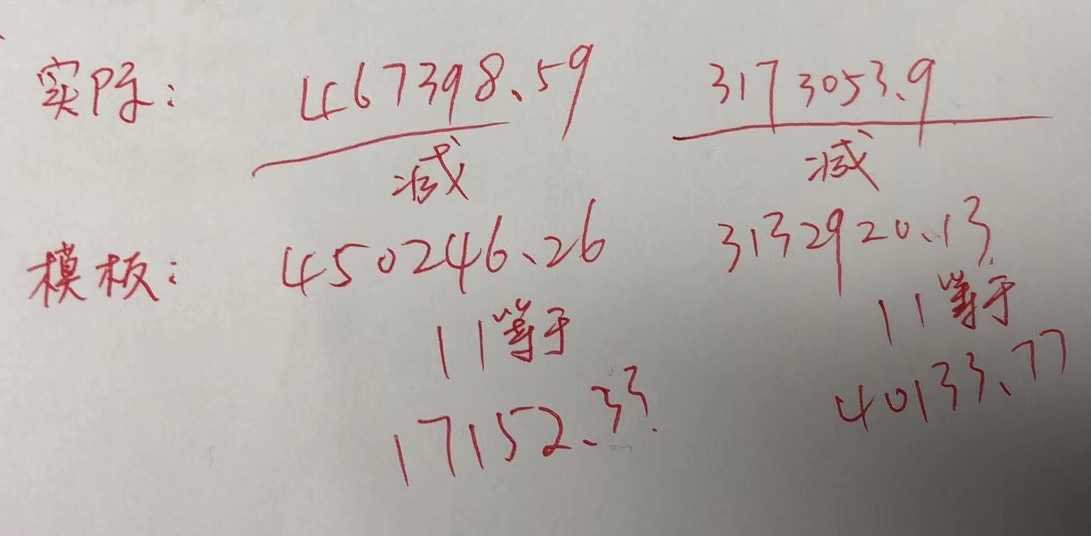 实际: 467398.59 3173053.9
减 减
模板: 450246.26 3132920.13
11等于 11等于
17152.33 40133.77